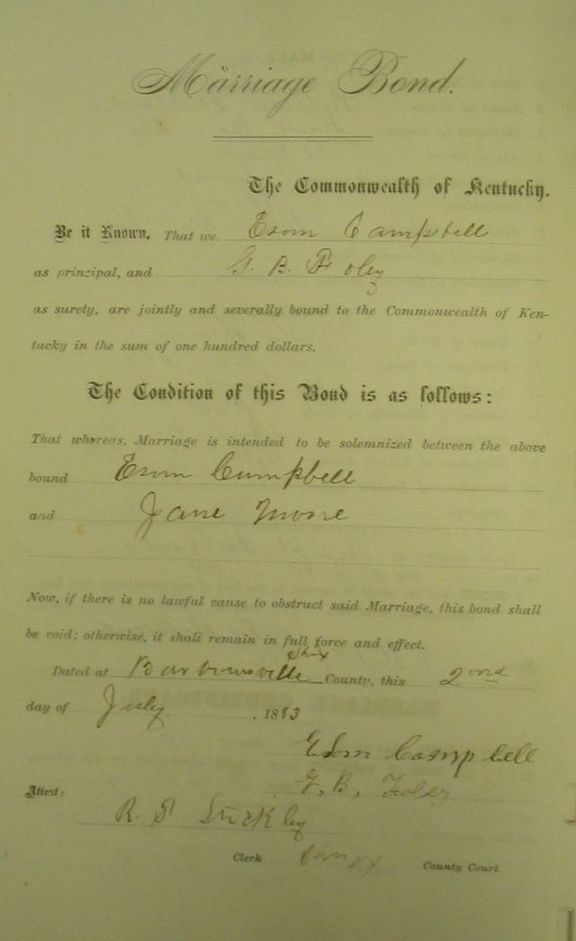 Marriage Bond.
The Commonwealth of Kentucky.
Be it Known, That we Esom Campbell
as principal, and G. B. Foley
as surety, are jointly and severally bound to the Commonwealth of Ken-
tucky in the sum of one hundred dollars.
The Condition of this Bond is as follows:
That whereas, Marriage is intended to be solemnized between the above
bound Esom Campbell
and Jane Moore
Now, if there is no lawful cause to obstruct said Marriage, this bond shall
be void; otherwise, it shall remain in full force and effect.
Knox
Dated at Barbourville County, this 2ond
day of July, 1883
Esom Campbell
G. B. Foley
Attest:
R. S
Clerk Knox County Court.